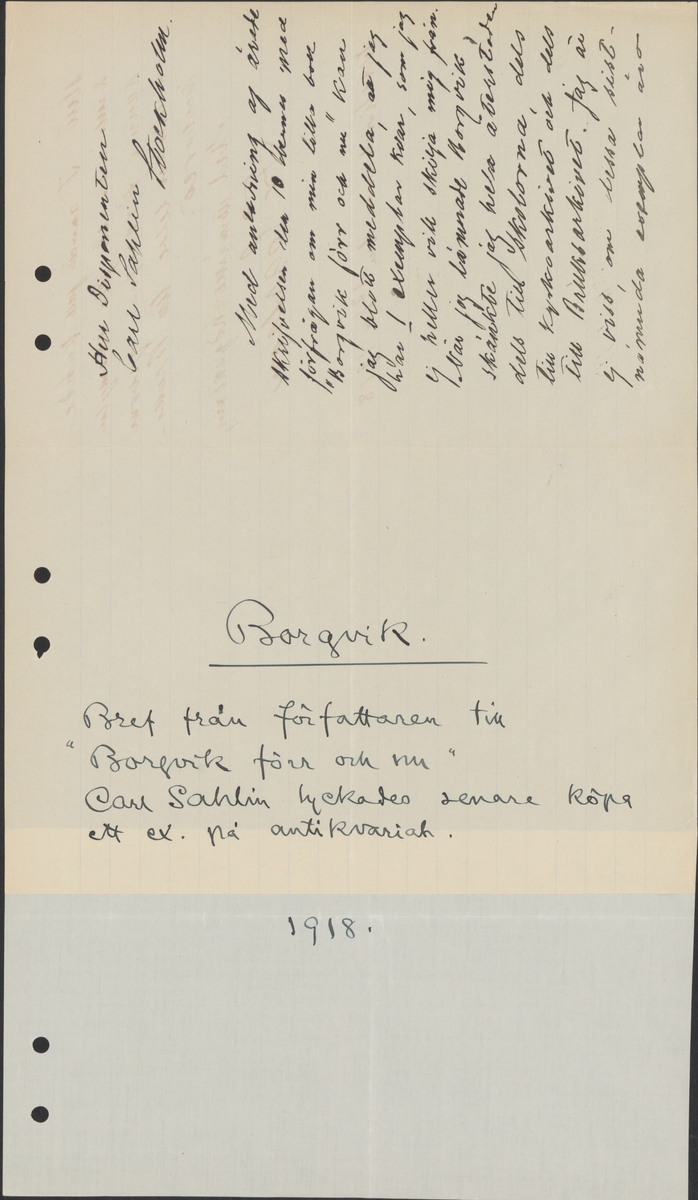 Herr Disponenten
Carl Sahlin
Stockholm.
Med anledning af ärade
skrifvelsen den 10 dennes med
förfrågan om min lilla bok
"Borgvik förr och nu" kan
jag blott meddela, att jag
har 1 exemplar kvar, som jag
ej heller vill skilja mig från.
När jag lämnade Borgvik
skänkte jag hela återstoden
dels till skolorna dels
till Kyrkoarkivet och dels
till Bruksarkivet. Jag är
ej viss om dessa sist-
nämnda exemplar äro
Borgvik.
Bref från författaren till
"Borgvik förr och nu"
Carl Sahlin lyckades senare köpa
ett ex. på antikvariat.
1918.